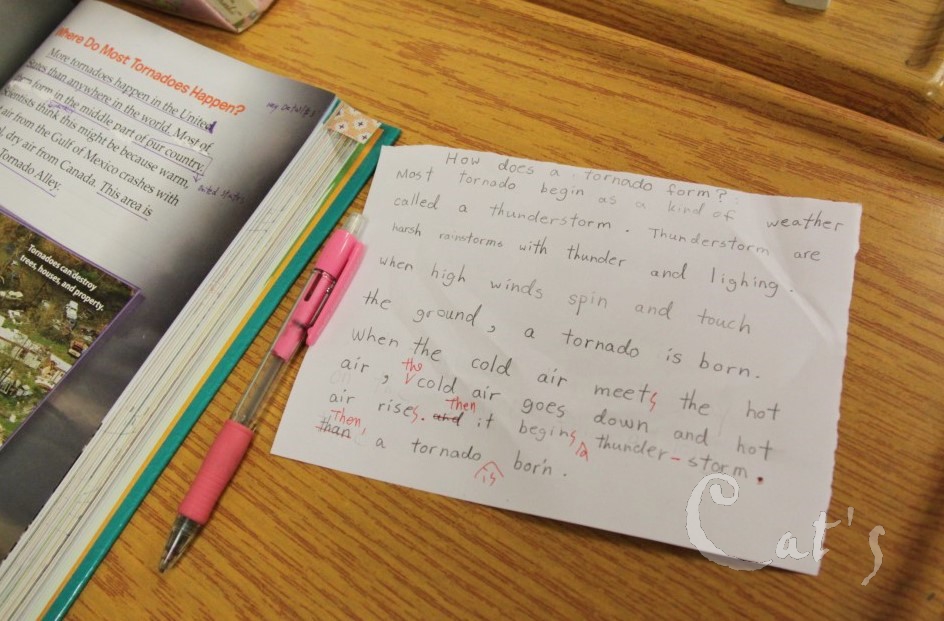 Where Do Most Tornadoes Happen?
More tornadoes happen in the United
States than anywhere in the world. Most of
form in the middle part of our country.
Scientists think this might be because warm,
air from the Gulf of Mexico crashes with
dry air from Canada. This area is
Tornado Alley.
Tornadoes can destroy
trees, houses, and property.
How does a tornado form?
Most tornado begin as a kind of weather
called a thunderstorm. Thunderstorm are
harsh rainstorms with thunder and lighing.
when high winds spin and touch
the ground, a tornado is born.
When the cold air meets the hot
air, the cold air goes down and hot
air rises. and then it begins a thunder-storm.
than Then, a tornado is born.
Cat's